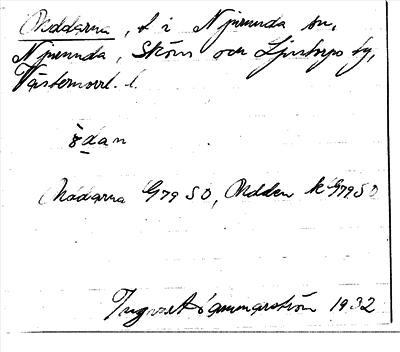 Oddarna, t. i Njurunda sn,
Njurunda, Sköns och Ljustorps tg,
Västernorrl. l.
ödan
Ådarna G79 SO, Odden k G79 SO
Ingvar Hammarström 1932